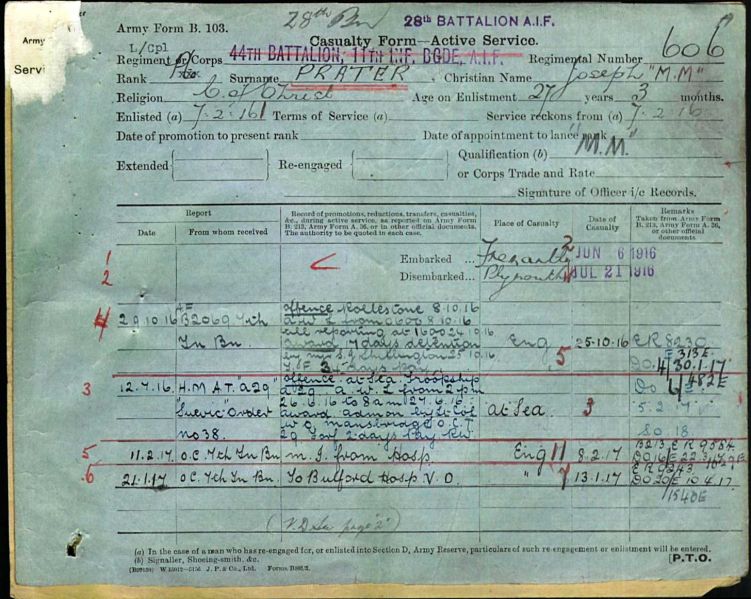 28th Bn
28th BATTALION A.I.F.
Army Form B. 103.
Army
Servi
Casualty Form—Active Service.
L/Cpl
Regiment or Corps 44TH BATTALION, 11TH INF. BGDE, A.I.F. Regimental Number 606
Rank Pte Surname PRATER Christian Name Joseph "M.M"
Religion C of Christ Age on Enlistment 27 years 3 months.
Enlisted (a) 7.2.16 Terms of Service (a) Service reckons from (a) 7.2.16
Date of promotion to present rank Date of appointment to lance rank
Extended Re-engaged Qualification (b) "M.M."
or Corps Trade and Rate
Signature of Officer i/c Records.
Report
Date From whom received
Record of promotions, reductions, transfers, casualties, &c., during active service, as reported on Army Form B. 213, Army Form A. 36, or in other official documents. The authority to be quoted in each case.
Place of Casualty
Date of Casualty
Remarks
Taken from Army Form B. 213, Army Form A. 36, or other official documents.
1
2
Embarked ... Fremantle 2 JUN 6 1916
Disembarked ... Plymouth JUL 21 1916
4
29.10.16 AF B2069 7th Tn Bn.
offence Rollestone 8.10.16
A W L from 8.10.16
till reporting at 1600 24.10.16
award 17 days detention
25.10.16
days pay
Eng 25.10.16 ER 8230
5 313E
DO 4/30.1.17
3
12.7.16 H.M.A.T. "A29" "Suevic" Order no 38.
offence at Sea Troopship
A29 A W L from 2 pm
26.6.16 to 8 am 27.6.16
award admon by Lt Col
W O Mansbridge O.C.T.
29 forf 2 days pay RW
at Sea 3
DO 4/482E
5.2.17
SO 18
5
11.2.17 O.C. 7th Tn Bn. M.I. from Hosp. Eng 11 8.2.17 B213 ER 9554
DO 16/E 22.3.17
6
21.1.17 O.C. 7th Tn Bn. To Bulford Hosp V.D. " 7 13.1.17 ER 9243
DO 20/E 10.4.17
1540E
page "2"
(a) In the case of a man who has re-engaged for, or enlisted into Section D, Army Reserve, particulars of such re-engagement or enlistment will be entered.
(b) Signaller, Shoeing-smith, &c.
[P.T.O.